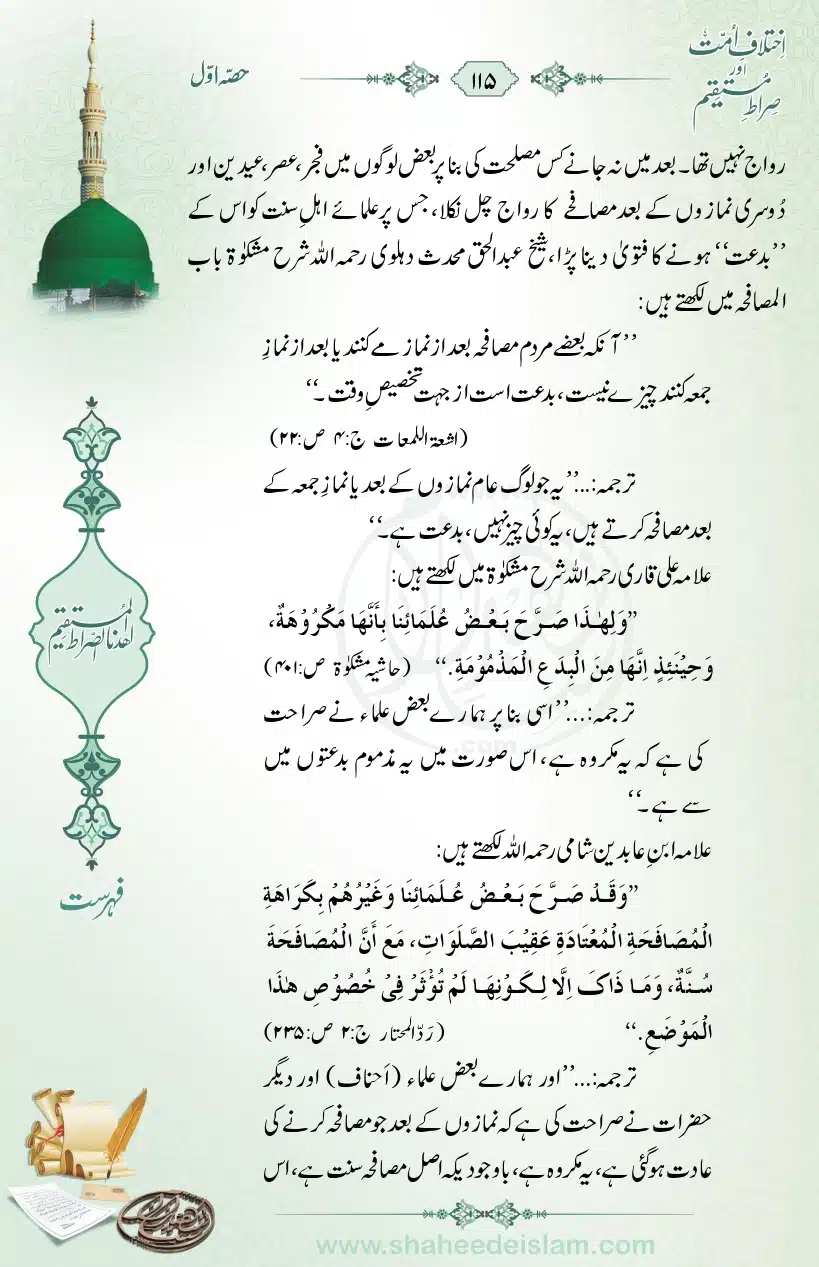 اِختلافِ اُمّت
اور
صِراطِ مُستقیم
۱۱۵
حصّہ اوّل
رواج نہیں تھا۔ بعد میں نہ جانے کس مصلحت کی بنا پر بعض لوگوں میں فجر، عصر، عیدین اور
دُوسری نمازوں کے بعد مصافحے کا رواج چل نکلا، جس پر علمائے اہلِ سنت کو اس کے
’’بدعت‘‘ ہونے کا فتویٰ دینا پڑا، شیخ عبدالحق محدث دہلوی رحمہ اللہ شرح مشکوٰۃ باب
المصافحہ میں لکھتے ہیں:
’’آنکہ بعضے مردم مصافحہ بعد از نماز مے کنند یا بعد از نمازِ
جمعہ کنند چیزے نیست، بدعت است از جہت تخصیصِ وقت۔‘‘
(اشعۃ اللمعات ج:۴ ص:۲۲)
ترجمہ:...’’یہ جو لوگ عام نمازوں کے بعد یا نمازِ جمعہ کے
بعد مصافحہ کرتے ہیں، یہ کوئی چیز نہیں، بدعت ہے۔‘‘
علامہ علی قاری رحمہ اللہ شرح مشکوٰۃ میں لکھتے ہیں:
’’وَلِهٰذَا صَرَّحَ بَعْضُ عُلَمَائِنَا بِأَنَّهَا مَكْرُوْهَةٌ،
وَحِيْنَئِذٍ اِنَّهَا مِنَ الْبِدَعِ الْمَذْمُوْمَةِ.‘‘ (حاشیہ مشکوٰۃ ص:۴۰۱)
ترجمہ:...’’اسی بنا پر ہمارے بعض علماء نے صراحت
کی ہے کہ یہ مکروہ ہے، اس صورت میں یہ مذموم بدعتوں میں
سے ہے۔‘‘
علامہ ابنِ عابدین شامی رحمہ اللہ لکھتے ہیں:
’’وَقَدْ صَرَّحَ بَعْضُ عُلَمَائِنَا وَغَيْرُهُمْ بِكَرَاهَةِ
الْمُصَافَحَةِ الْمُعْتَادَةِ عَقِيْبَ الصَّلَوَاتِ، مَعَ أَنَّ الْمُصَافَحَةَ
سُنَّةٌ، وَمَا ذَاکَ اِلَّا لِكَوْنِهَا لَمْ تُؤْثَرْ فِیْ خُصُوْصِ هٰذَا
الْمَوْضَعِ.‘‘ (رَدّ المحتار ج:۲ ص:۲۳۵)
ترجمہ:...’’اور ہمارے بعض علماء (اَحناف) اور دیگر
حضرات نے صراحت کی ہے کہ نمازوں کے بعد جو مصافحہ کرنے کی
عادت ہوگئی ہے، یہ مکروہ ہے، باوجودیکہ اصل مصافحہ سنت ہے، اس
اهدنا الصراط المستقیم
فہرست
www.shaheedeislam.com